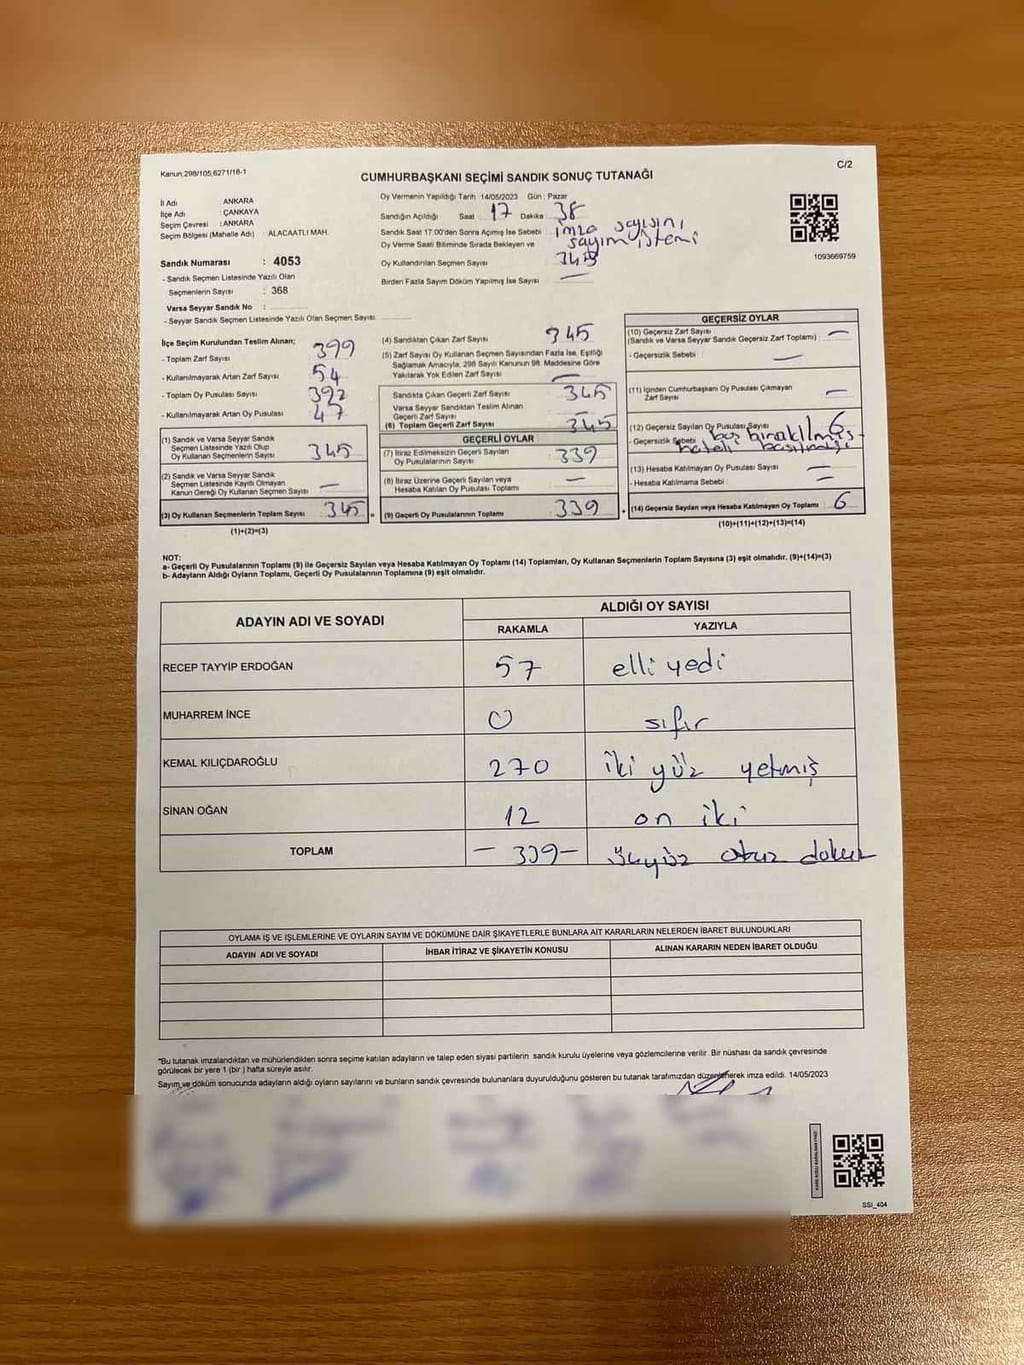 Kanun;298/105,6271/18-1
C/2
CUMHURBAŞKANI SEÇİMİ SANDIK SONUÇ TUTANAĞI
İl Adı : ANKARA
İlçe Adı : ÇANKAYA
Seçim Çevresi : ANKARA
Seçim Bölgesi (Mahalle Adı) : ALACAATLI MAH.
Sandık Numarası : 4053
- Sandık Seçmen Listesinde Yazılı Olan
Seçmenlerin Sayısı : 368
Varsa Seyyar Sandık No :
- Seyyar Sandık Seçmen Listesinde Yazılı Olan Seçmen Sayısı:
Oy Vermenin Yapıldığı Tarih 14/05/2023 Gün : Pazar
Sandığın Açıldığı Saat 17 Dakika 38
Sandık Saat 17:00'den Sonra Açımış İse Sebebi imza sayısını
Oy Verme Saati Bitiminde Sırada Bekleyen ve sayım istemi
Oy Kullandırılan Seçmen Sayısı 345
Birden Fazla Sayım Döküm Yapılmış İse Sayısı —
1093669759
İlçe Seçim Kurulundan Teslim Alınan;
- Toplam Zarf Sayısı 399
- Kullanılmayarak Artan Zarf Sayısı 54
- Toplam Oy Pusulası Sayısı 392
- Kullanılmayarak Artan Oy Pusulası 47
(1) Sandık ve Varsa Seyyar Sandık
Seçmen Listesinde Yazılı Olup
Oy Kullanan Seçmenlerin Sayısı 345
(2) Sandık ve Varsa Seyyar Sandık
Seçmen Listesinde Kayıtlı Olmayan
Kanun Gereği Oy Kullanan Seçmen Sayısı —
(3) Oy Kullanan Seçmenlerin Toplam Sayısı 345
(1)+(2)=(3)
(4) Sandıktan Çıkan Zarf Sayısı 345
(5) Zarf Sayısı Oy Kullanan Seçmen Sayısından Fazla İse, Eşitliği
Sağlamak Amacıyla, 298 Sayılı Kanunun 98. Maddesine Göre
Yakılarak Yok Edilen Zarf Sayısı —
Sandıkta Çıkan Geçerli Zarf Sayısı 345
Varsa Seyyar Sandıktan Teslim Alınan
Geçerli Zarf Sayısı
(6) Toplam Geçerli Zarf Sayısı 345
GEÇERLİ OYLAR
(7) İtiraz Edilmeksizin Geçerli Sayılan
Oy Pusulalarının Sayısı 339
(8) İtiraz Üzerine Geçerli Sayılan veya
Hesaba Katılan Oy Pusulası Toplamı —
(9) Geçerli Oy Pusulalarının Toplamı 339
GEÇERSİZ OYLAR
(10) Geçersiz Zarf Sayısı
(Sandık ve Varsa Seyyar Sandık Geçersiz Zarf Toplamı) —
- Geçersizlik Sebebi : —
(11) İçinden Cumhurbaşkanı Oy Pusulası Çıkmayan
Zarf Sayısı —
(12) Geçersiz Sayılan Oy Pusulası Sayısı 6
- Geçersizlik Sebebi boş bırakılmış-
hatalı basılmış
(13) Hesaba Katılmayan Oy Pusulası Sayısı —
- Hesaba Katılmama Sebebi : —
(14) Geçersiz Sayılan veya Hesaba Katılmayan Oy Toplamı 6
(10)+(11)+(12)+(13)=(14)
NOT:
a- Geçerli Oy Pusulasının Toplamı (9) ile Geçersiz Sayılan veya Hesaba Katılmayan Oy Toplamı (14) Toplamları, Oy Kullanan Seçmenlerin Toplam Sayısına (3) eşit olmalıdır. (9)+(14)=(3)
b- Adayların Aldığı Oyların Toplamı, Geçerli Oy Pusulalarının Toplamına (9) eşit olmalıdır.
ADAYIN ADI VE SOYADI ALDIĞI OY SAYISI
RAKAMLA YAZIYLA
RECEP TAYYİP ERDOĞAN 57 elli yedi
MUHARREM İNCE 0 sıfır
KEMAL KILIÇDAROĞLU 270 iki yüz yetmiş
SİNAN OĞAN 12 on iki
TOPLAM - 339 - üçyüz otuz dokuz
OYLAMA İŞ VE İŞLEMLERİNE VE OYLARIN SAYIM VE DÖKÜMÜNE DAİR ŞİKAYETLERLE BUNLARA AİT KARARLARIN NELERDEN İBARET BULUNDUKLARI
ADAYIN ADI VE SOYADI İHBAR İTİRAZ VE ŞİKAYETİN KONUSU ALINAN KARARIN NEDEN İBARET OLDUĞU
*Bu tutanak imzalandıktan ve mühürlendikten sonra seçime katılan adayların ve talep eden siyasi partilerin sandık kurulu üyelerine veya gözlemcilerine verilir. Bir nüshası da sandık çevresinde
görülecek bir yere 1 (bir) hafta süreyle asılır.
Sayım ve döküm sonucunda adayların aldığı oyların sayılarını ve bunların sandık çevresinde bulunanlara duyurulduğunu gösteren bu tutanak tarafımızdan düzenlenerek imza edildi. 14/05/2023
SSI_404